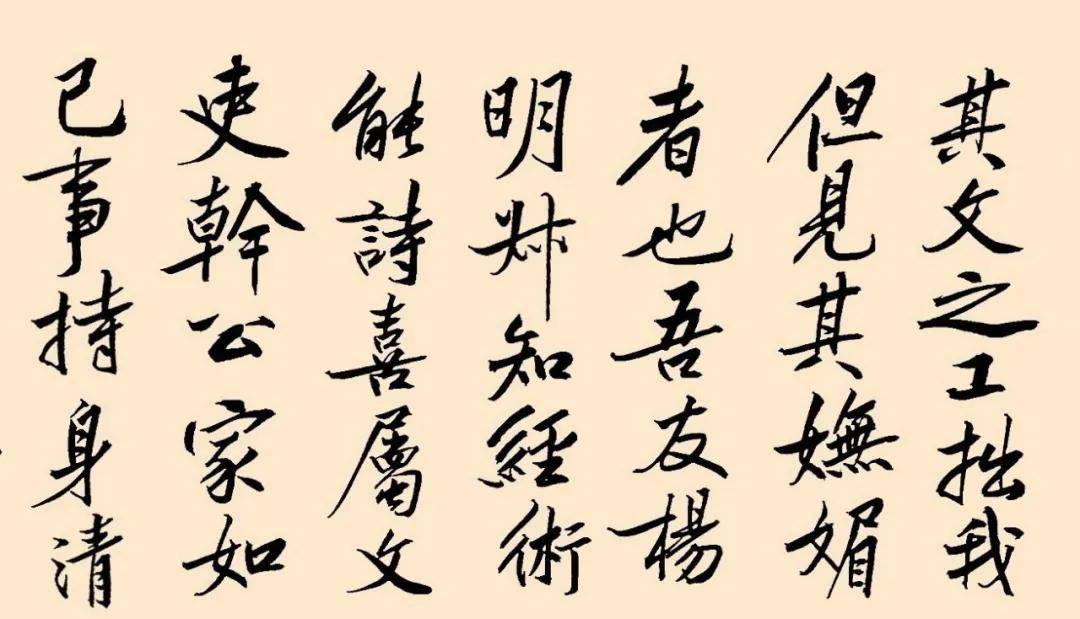 其文之工拙我
但見其嫵媚
者也吾友楊
明叔知經術
能詩喜屬文
吏幹公家如
己事持身清